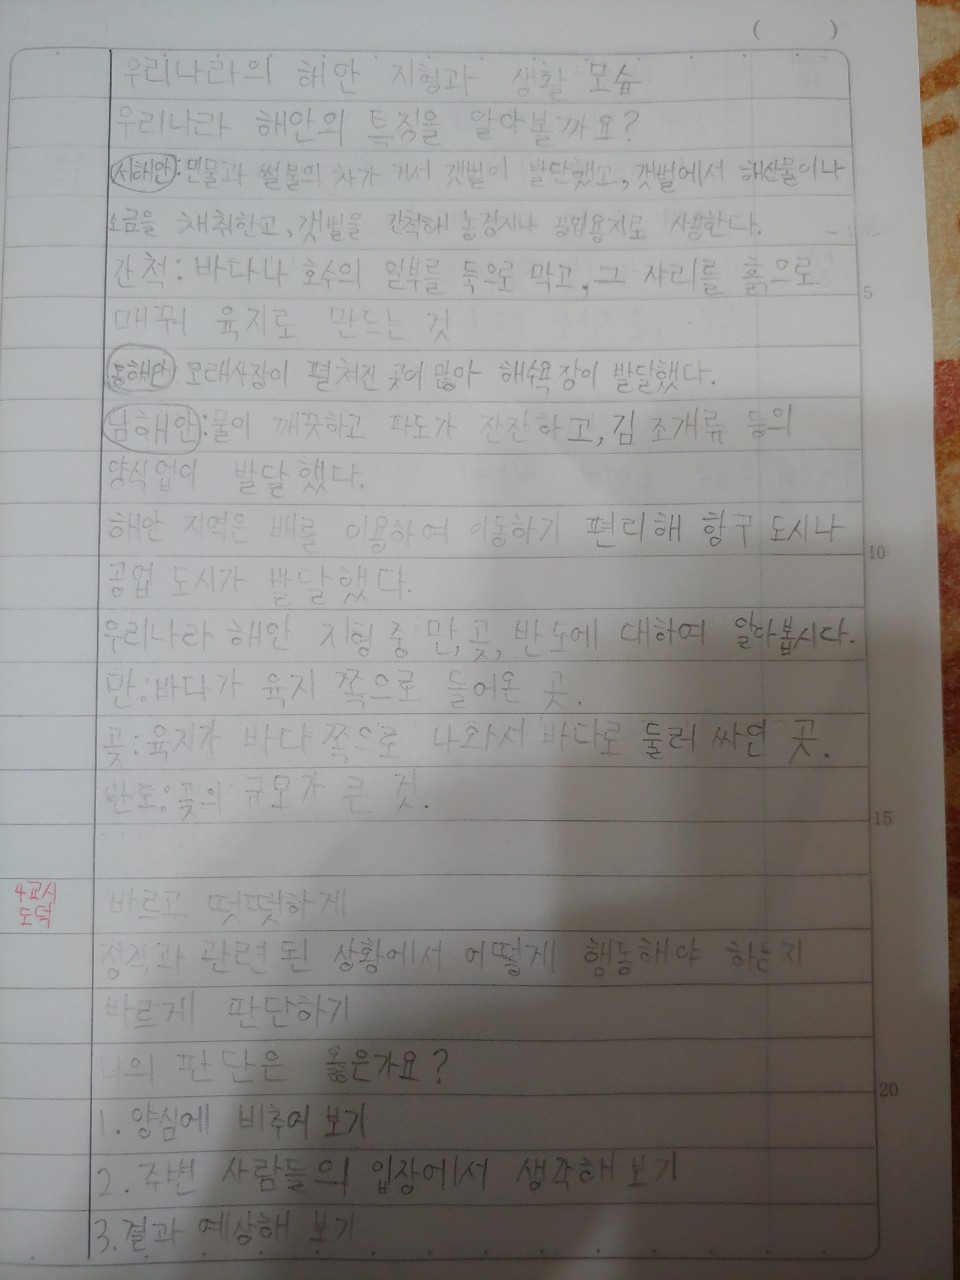 ( )
우리나라의 해안 지형과 생활 모습
우리나라 해안의 특징을 알아볼까요?
서해안: 밀물과 썰물의 차가 커서 갯벌이 발단했고, 갯벌에서 해산물이나
소금을 채취한고, 갯벌을 간척해 농경지나 공업용지로 사용한다.
간척: 바다나 호수의 일부를 둑으로 막고, 그 자리를 흙으로
5
매꿔 육지로 만드는 것
동해안: 모래사장이 펼쳐진 곳이 많아 해수욕장이 발달했다.
남해안: 물이 깨끗하고 파도가 잔잔하고, 김 조개류 등의
양식업이 발달했다.
해안 지역은 배를 이용하여 이동하기 편리해 항구 도시나
10
공업 도시가 발달했다.
우리나라 해안 지형 중 만, 곶, 반도에 대하여 알아봅시다.
만: 바다가 육지 쪽으로 들어온 곳.
곶: 육지가 바다 쪽으로 나와서 바다로 둘러 싸인 곳.
반도: 곶의 규모가 큰 것.
15
4교시
도덕
바르고 떳떳하게
정직과 관련된 상황에서 어떻게 행동해야 하는지
바르게 판단하기
나의 판단은 옳은가요?
20
1. 양심에 비추어 보기
2. 주변 사람들의 입장에서 생각해 보기
3. 결과 예상해 보기